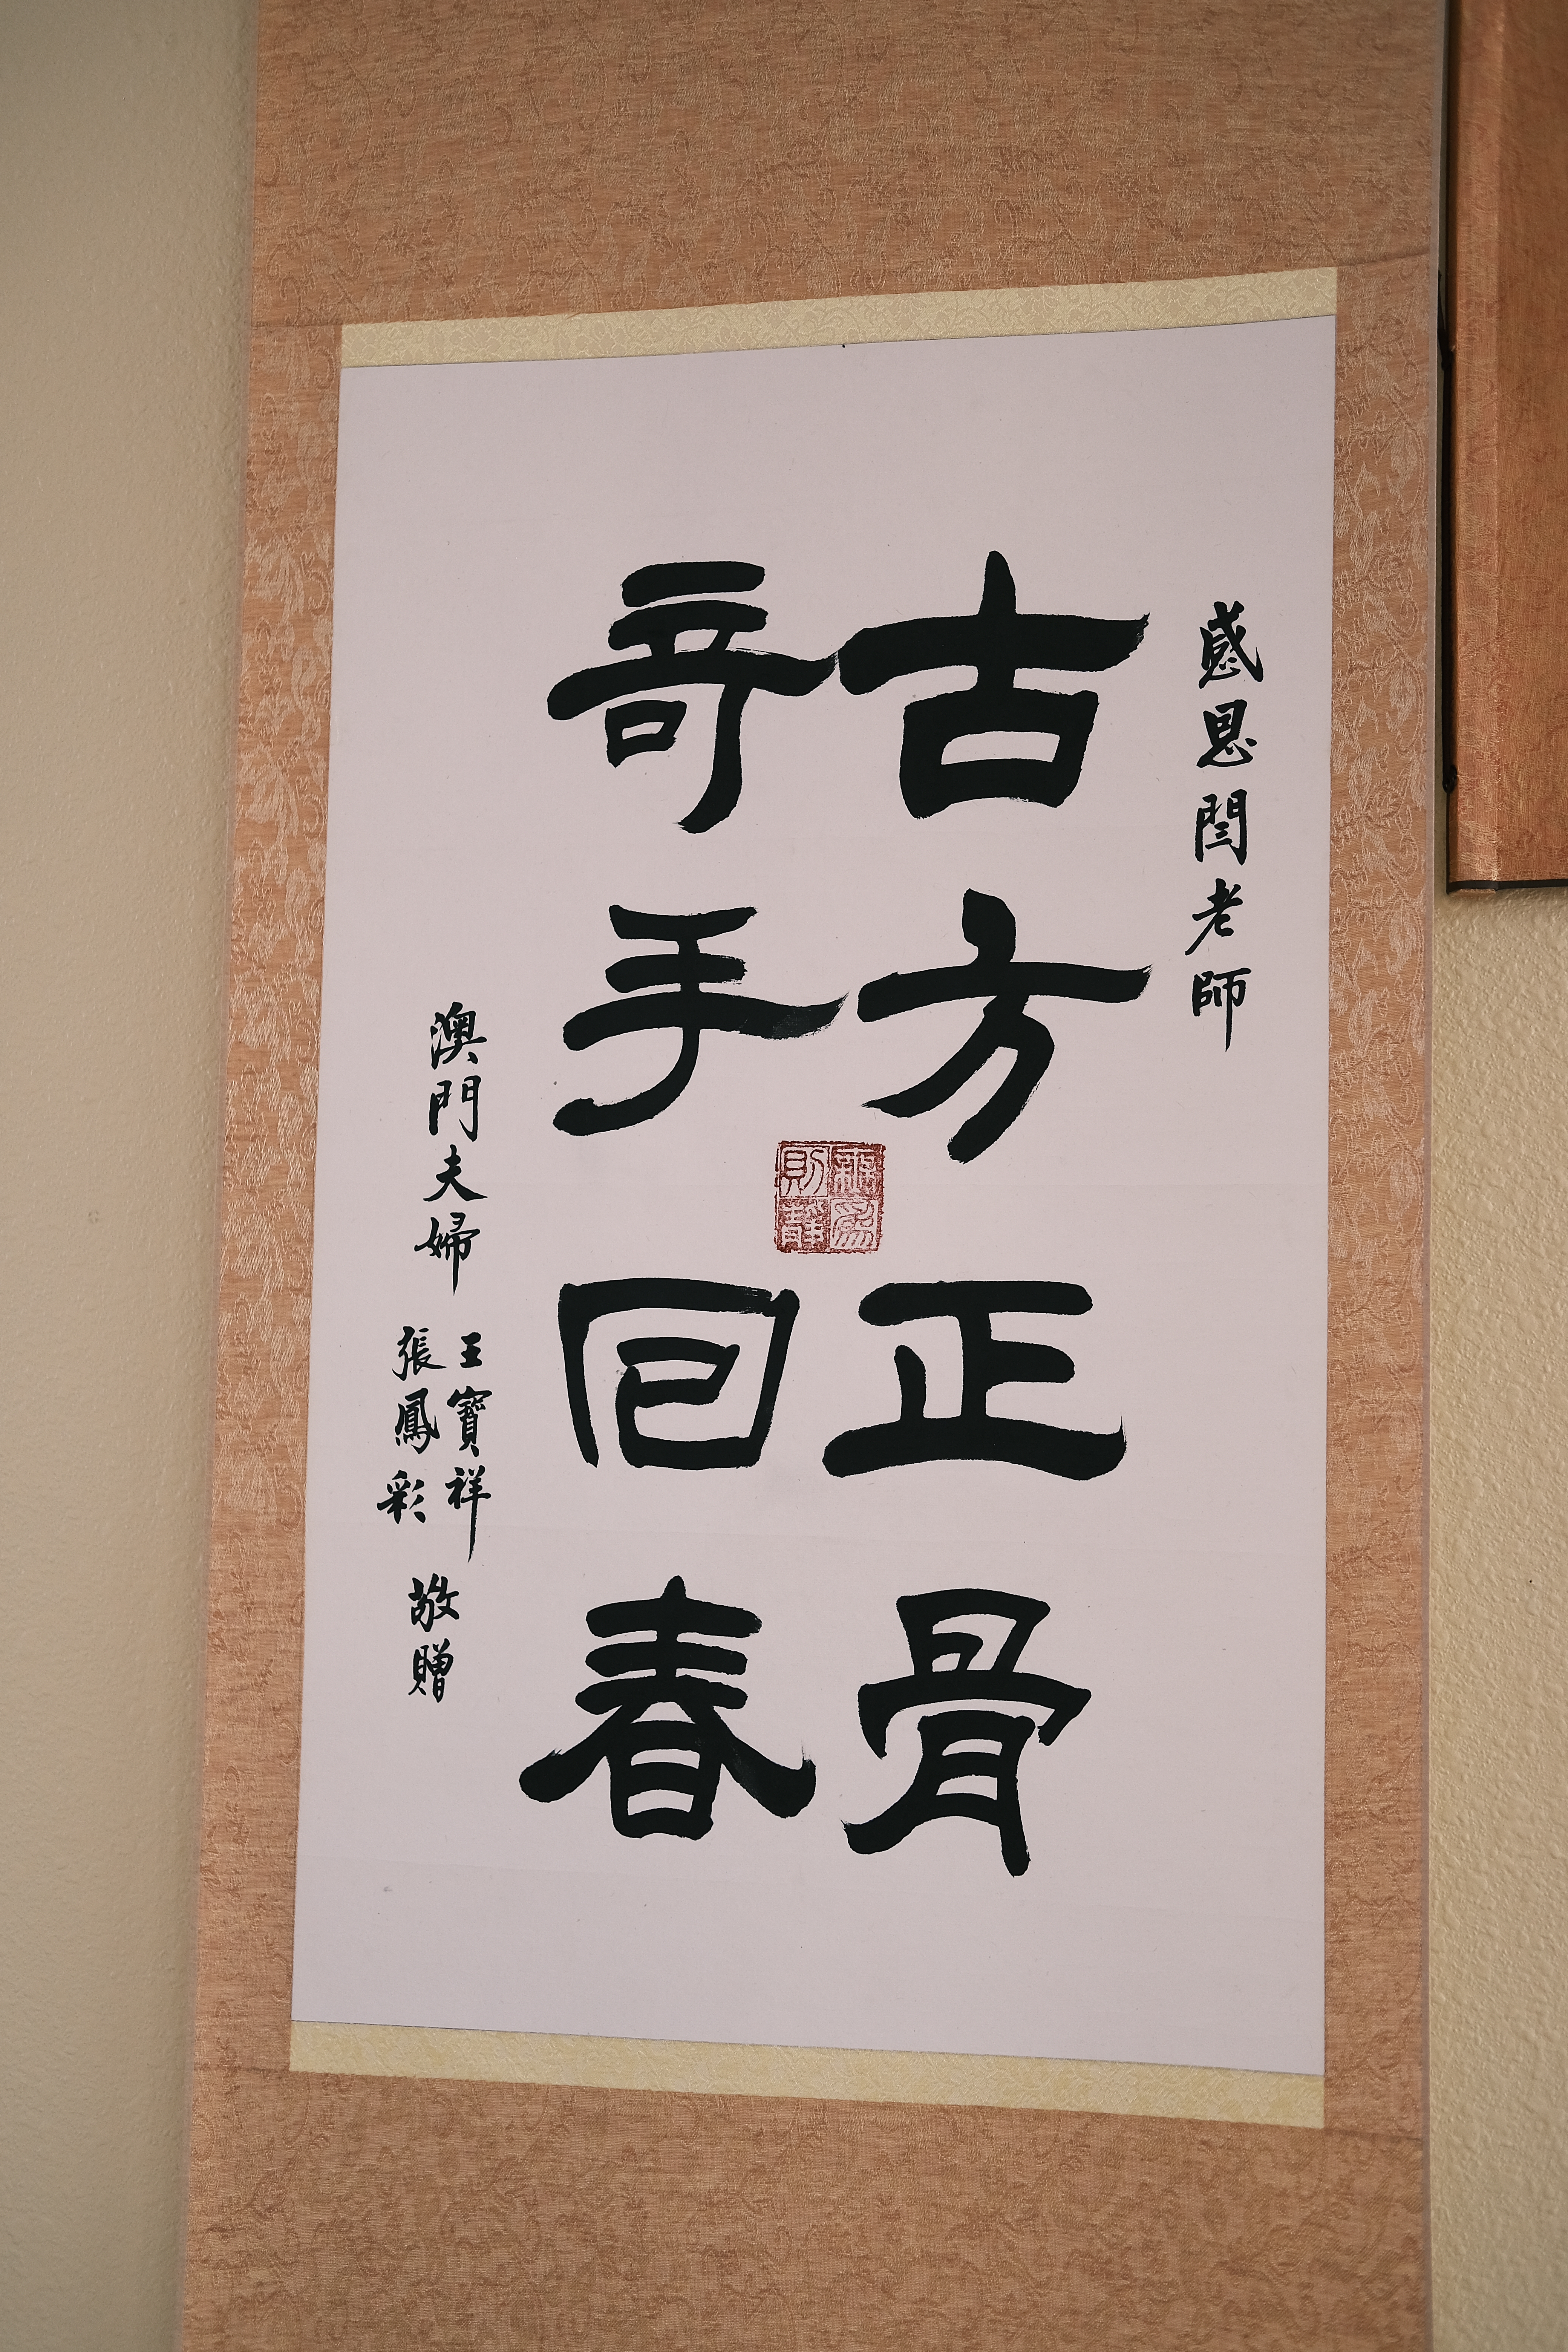 感恩閆老師
古方正骨
竒手囘春
澳門夫婦
王寶祥
張鳳彩
敬贈